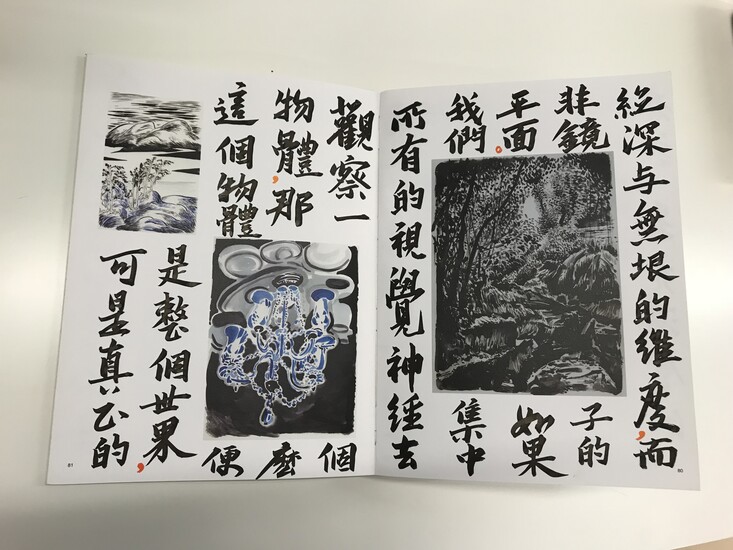 縱深与無垠的維度,而
非鏡子的
平面。如果
我們集中
所有的視覺神經去
80
觀察一個
物體,那麼
這個物體便
是整個世界,
可是真正的
81